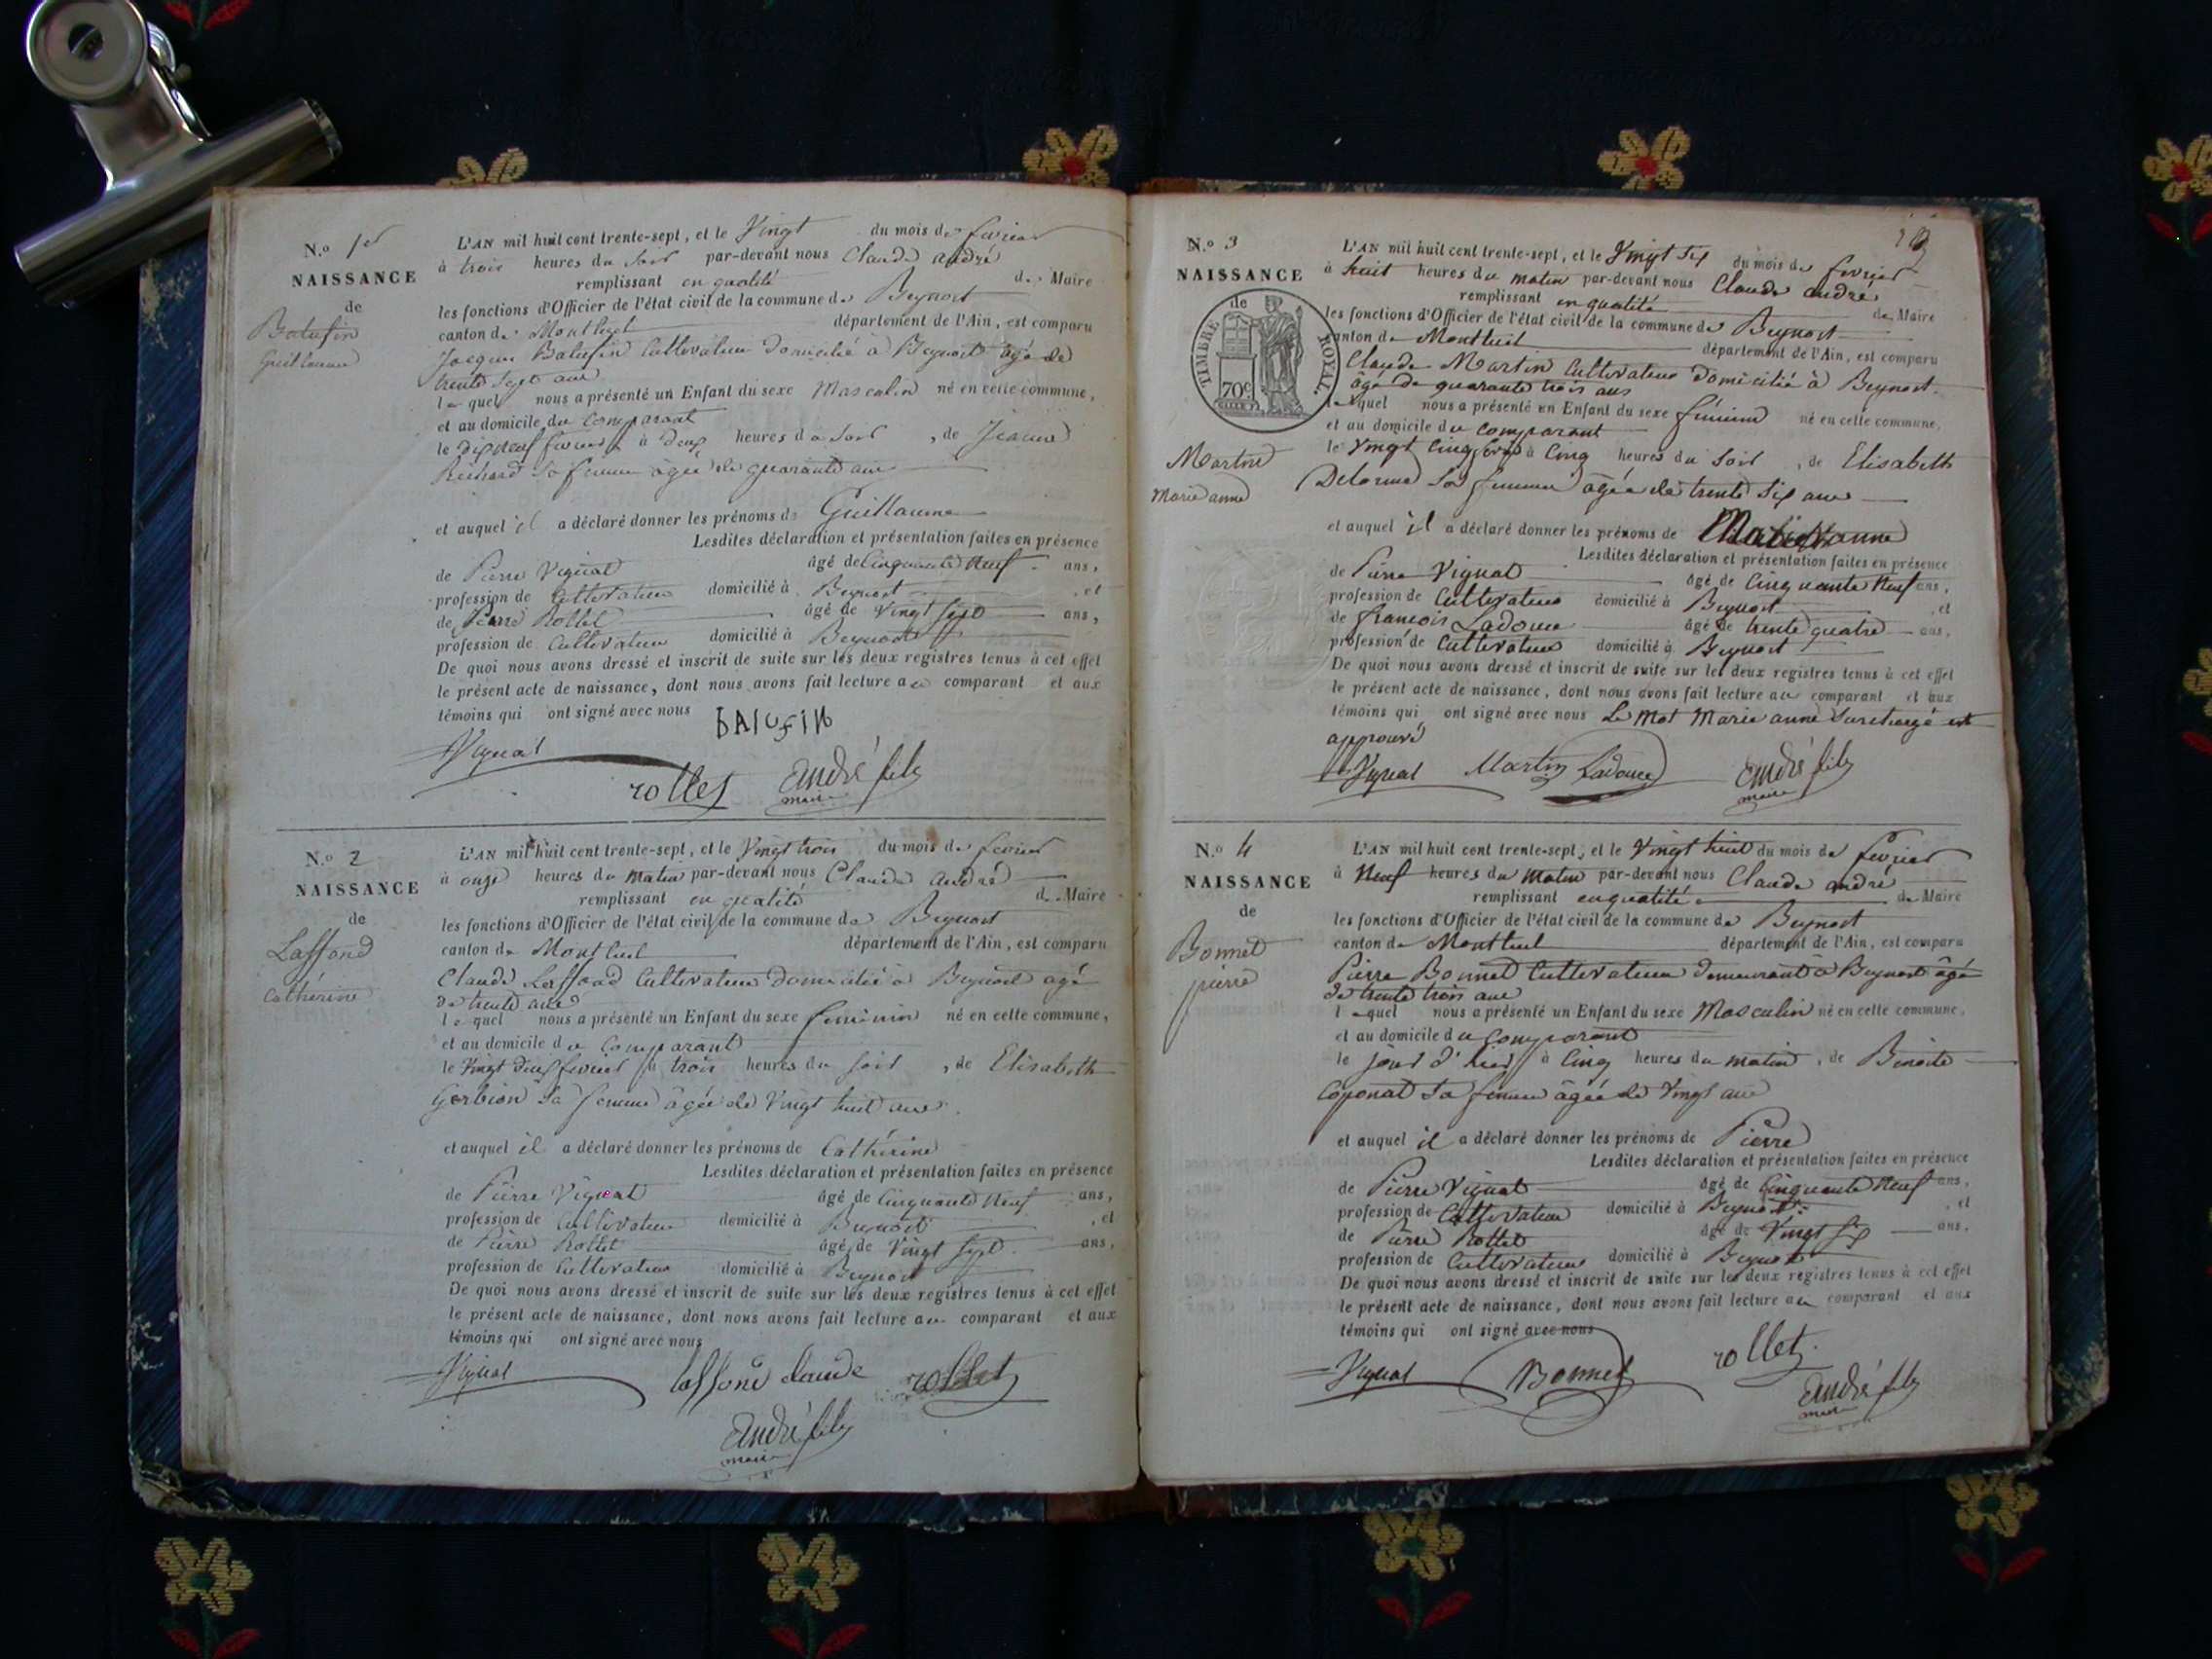 N.o 1er
NAISSANCE
de
Balufin
Guillaume
L'AN mil huit cent trente-sept, et le Vingt du mois de fevrier
à trois heures du soir par-devant nous Claude andré
remplissant en qualité de Maire
les fonctions d'Officier de l'état civil de la commune de Beynost
canton de Montluel département de l'Ain, est comparu
Jacques Balufin Cultivateur domicilié à Beynost agé de
trente sept ans
lequel nous a présenté un Enfant du sexe Masculin né en cette commune,
et au domicile du comparant
le dix neuf fevrier à deux heures du soir, de Jeanne
Richard sa femme âgée de quarante ans
et auquel il a déclaré donner les prénoms de Guillaume
Lesdites déclaration et présentation faites en présence
de Pierre Vignat âgé de Cinquante Neuf ans,
profession de Cultivateur domicilié à Beynost, et
de Pierre Rollet âgé de Vingt Sept ans,
profession de Cultivateur domicilié à Beynost
De quoi nous avons dressé et inscrit de suite sur les deux registres tenus à cet effet
le présent acte de naissance, dont nous avons fait lecture au comparant et aux
témoins qui ont signé avec nous BALUFIN
Vignat
rollet André fils
maire
N.o 2
NAISSANCE
de
Laffond
Catherine
L'AN mil huit cent trente-sept, et le Vingt trois du mois de fevrier
à onze heures du matin par-devant nous Claude andré
remplissant en qualité de Maire
les fonctions d'Officier de l'état civil de la commune de Beynost
canton de Montluel département de l'Ain, est comparu
Claude Laffond Cultivateur domicilié à Beynost agé
de trente ans
lequel nous a présenté un Enfant du sexe feminin né en cette commune,
et au domicile du comparant
le Vingt deux fevrier à trois heures du soir, de Elisabeth
Gerbion sa femme âgée de Vingt huit ans
et auquel il a déclaré donner les prénoms de Cathérine
Lesdites déclaration et présentation faites en présence
de Pierre Vignat âgé de Cinquante Neuf ans,
profession de Cultivateur domicilié à Beynost, et
de Pierre Rollet âgé de Vingt Sept ans,
profession de Cultivateur domicilié à Beynost
De quoi nous avons dressé et inscrit de suite sur les deux registres tenus à cet effet
le présent acte de naissance, dont nous avons fait lecture au comparant et aux
témoins qui ont signé avec nous
Vignat laffond claude rollet
André fils
maire
N.o 3
NAISSANCE
de
TIMBRE ROYAL.
70c.
Martin
Marie anne
L'AN mil huit cent trente-sept, et le Vingt six du mois de fevrier
à huit heures du matin par-devant nous Claude andré
remplissant en qualité de Maire
les fonctions d'Officier de l'état civil de la commune de Beynost
canton de Montluel département de l'Ain, est comparu
Claude Martin Cultivateur domicilié à Beynost
âgé de quarante trois ans
lequel nous a présenté un Enfant du sexe féminin né en cette commune,
et au domicile du comparant
le Vingt Cinq fevrier à Cinq heures du soir, de Elisabeth
Delorme sa femme âgée de trente six ans
et auquel il a déclaré donner les prénoms de Marie anne
Lesdites déclaration et présentation faites en présence
de Pierre Vignat âgé de Cinquante Neuf ans,
profession de Cultivateur domicilié à Beynost, et
de françois Ladouce âgé de trente quatre ans,
profession de Cultivateur domicilié à Beynost
De quoi nous avons dressé et inscrit de suite sur les deux registres tenus à cet effet
le présent acte de naissance, dont nous avons fait lecture au comparant et aux
témoins qui ont signé avec nous Le mot Marie anne surchargé est
approuvé
Vignat Martin Ladouce André fils
maire
N.o 4
NAISSANCE
de
Bonnet
pierre
L'AN mil huit cent trente-sept, et le Vingt huit du mois de fevrier
à Neuf heures du matin par-devant nous Claude andré
remplissant en qualité de Maire
les fonctions d'Officier de l'état civil de la commune de Beynost
canton de Montluel département de l'Ain, est comparu
Pierre Bonnet Cultivateur demeurant à Beynost âgé
de trente trois ans
lequel nous a présenté un Enfant du sexe Masculin né en cette commune,
et au domicile du comparant
le jour d'hier à Cinq heures du matin, de Benoite
Coponat sa femme âgée de Vingt ans
et auquel il a déclaré donner les prénoms de Pierre
Lesdites déclaration et présentation faites en présence
de Pierre Vignat âgé de Cinquante Neuf ans,
profession de Cultivateur domicilié à Beynost, et
de Pierre Rollet âgé de Vingt Sept ans,
profession de Cultivateur domicilié à Beynost
De quoi nous avons dressé et inscrit de suite sur les deux registres tenus à cet effet
le présent acte de naissance, dont nous avons fait lecture au comparant et aux
témoins qui ont signé avec nous
Vignat Bonnet rollet
André fils
maire